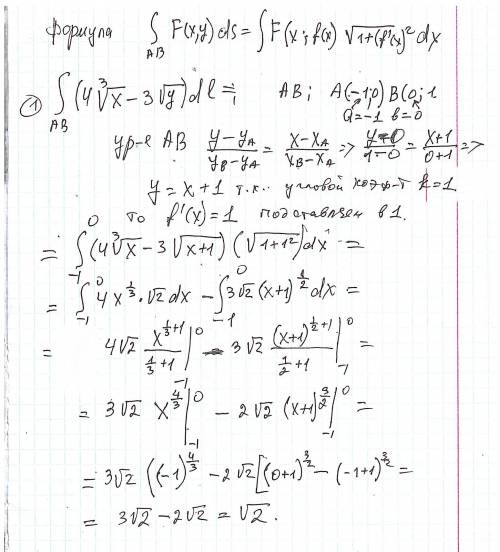 формула ∫_{AB} F(x,y) ds = ∫ F(x; f(x)) √(1+(f'(x))²) dx
① ∫_{AB} (4∛x − 3√y) dl = ; AB; A(−1;0) B(0;1
a=−1 b=0
ур-е AB (y−y_A)/(y_B−y_A) = (x−x_A)/(x_B−x_A) => (y−0)/(1−0) = (x+1)/(0+1) =>
y = x+1 т.к. угловой коэф-т k=1
то f'(x)=1 подставляем в 1.
= ∫_{−1}^{0} (4∛x − 3√(x+1)) (√(1+1²)) dx =
= ∫_{−1}^{0} 4x^{1/3}·√2 dx − ∫_{−1}^{0} 3√2 (x+1)^{1/2} dx =
= 4√2 x^{1/3+1}/(1/3+1) |_{−1}^{0} − 3√2 (x+1)^{1/2+1}/(1/2+1) |_{−1}^{0} =
= 3√2 x^{4/3} |_{−1}^{0} − 2√2 (x+1)^{3/2} |_{−1}^{0} =
= 3√2 ((−1)^{4/3} − 2√2 [(0+1)^{3/2} − (−1+1)^{3/2} =
= 3√2 − 2√2 = √2.